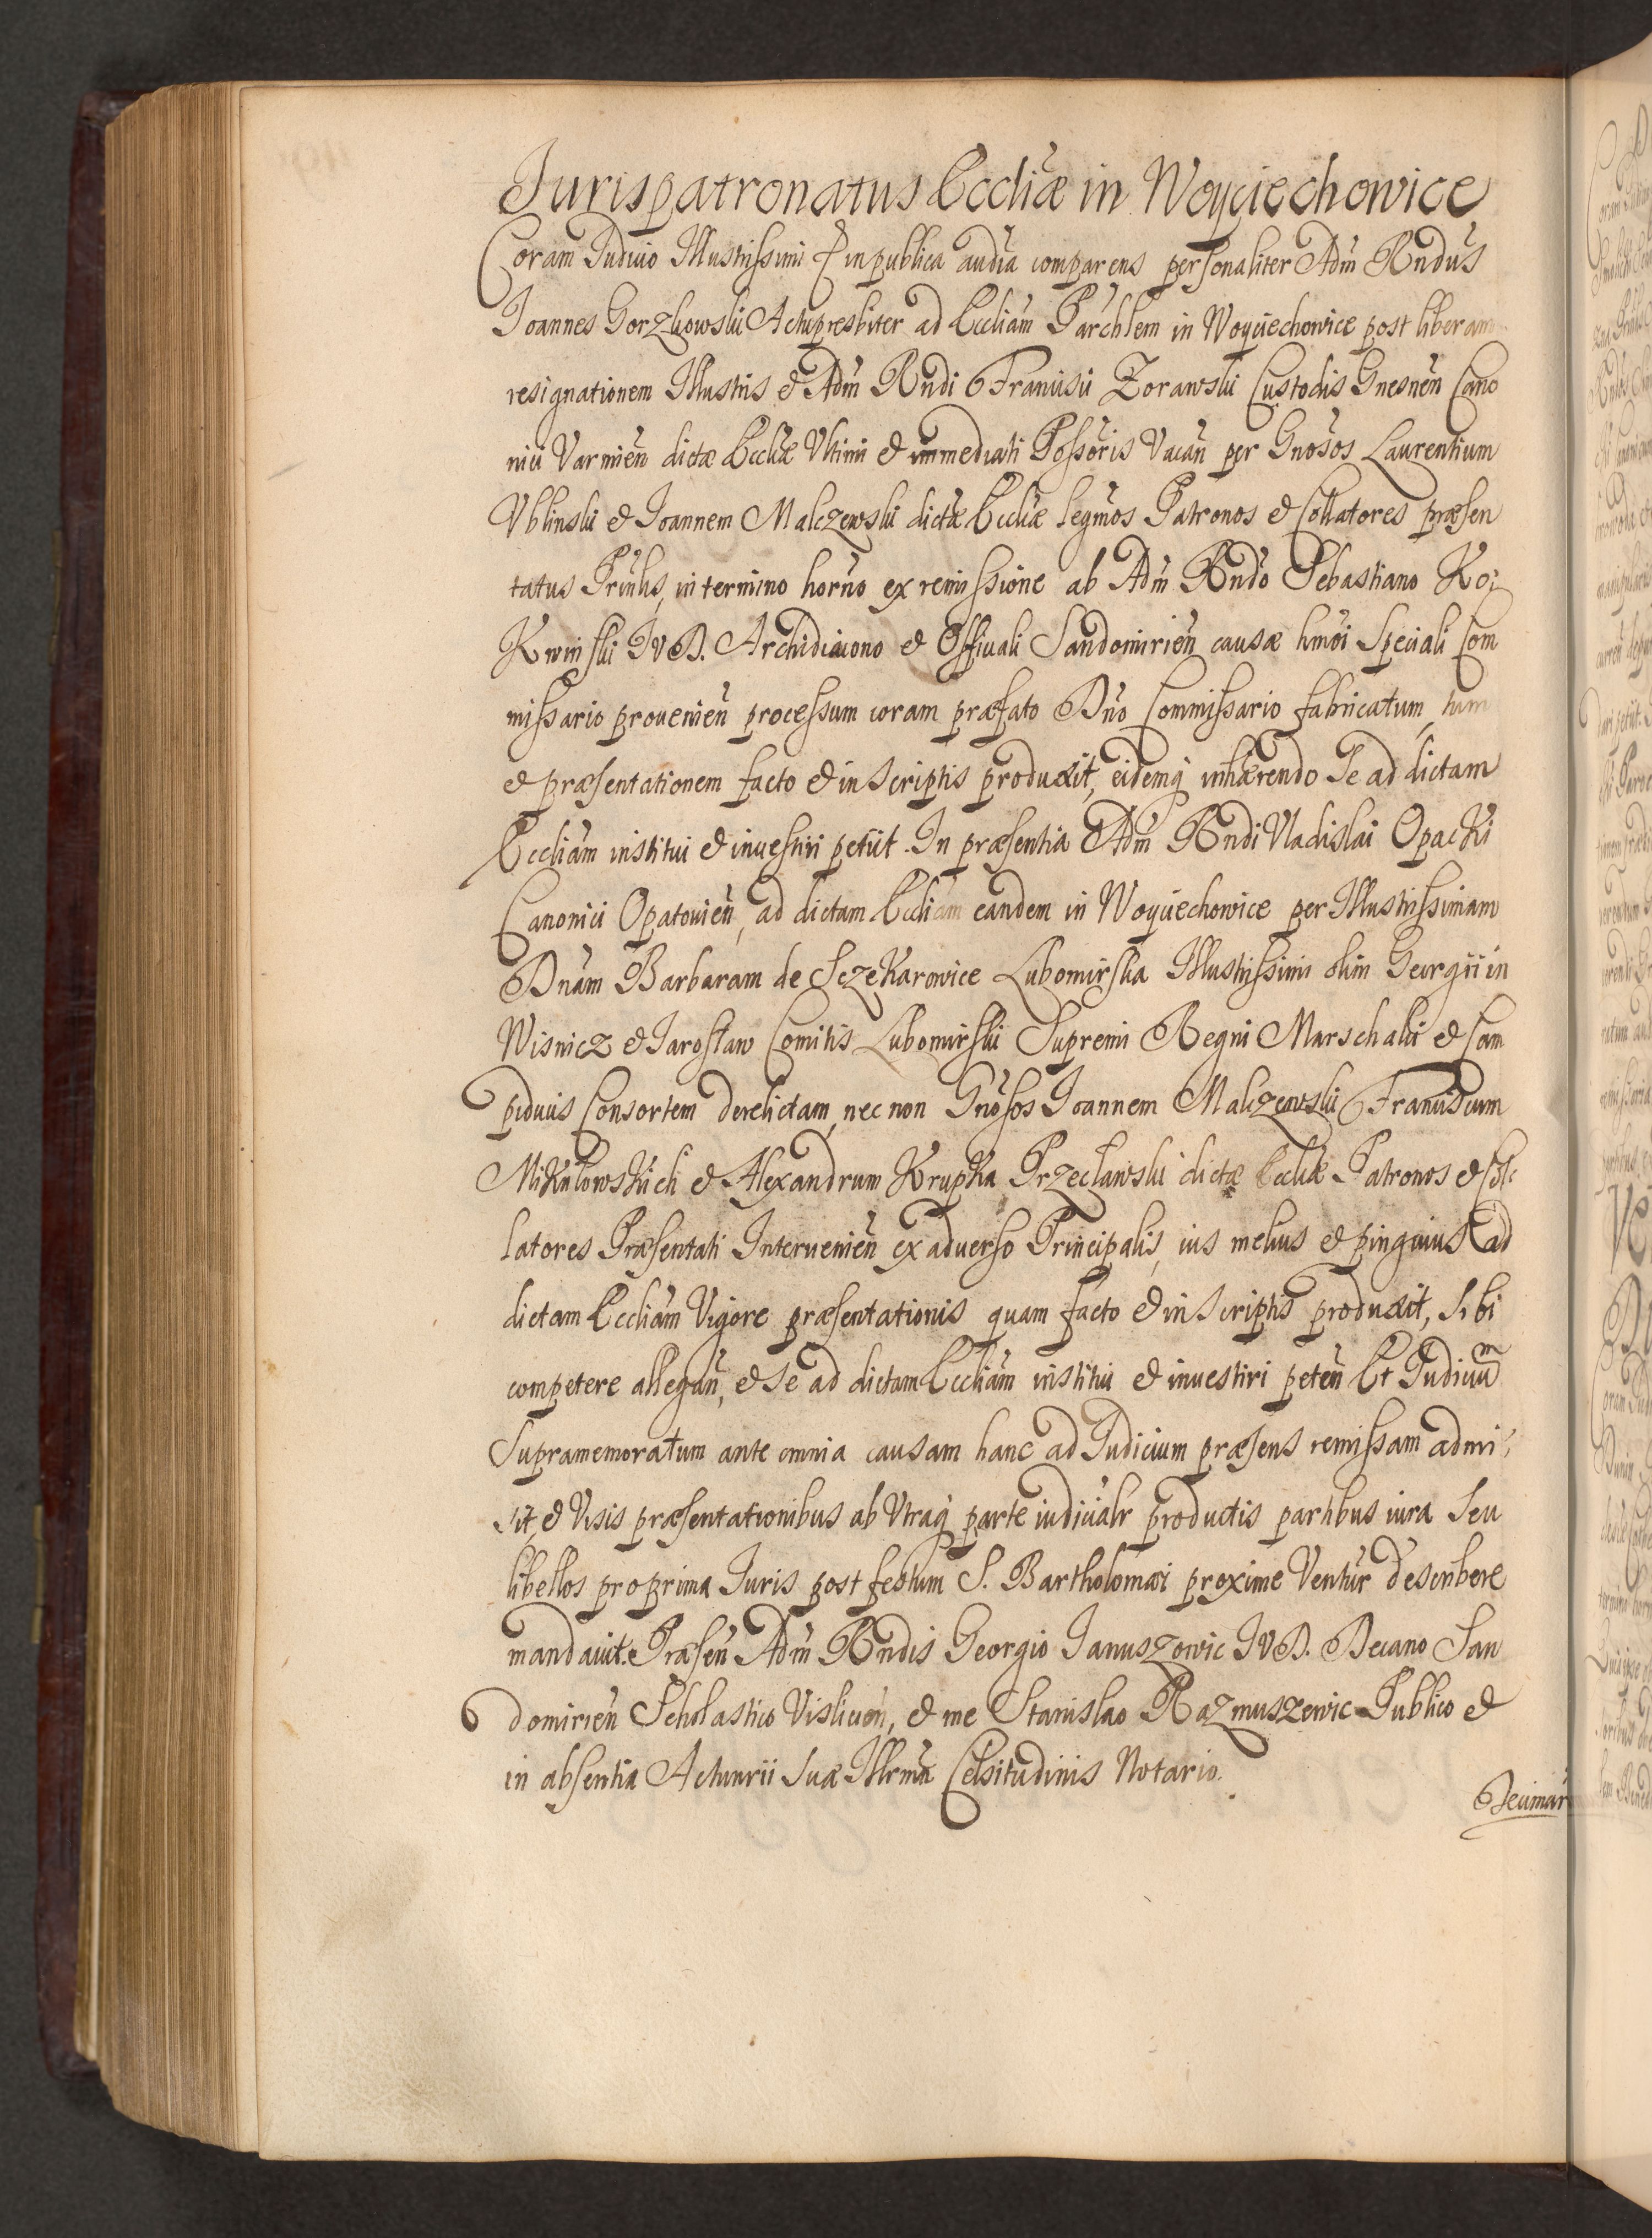 Jurispatronatus Eccliæ in Woyciechowice
Coram Judicio Illustrissimi & in publica audia comparens personaliter Adm Rndus
Joannes Gorzkowski Actupresbiter ad Eccliam Parchlem in Woyciechowice post liberam
resignationem Illustris & Adm Rndi Francisci Zorawski Custodis Gnesnen Cano
nici Varmien dictæ Eccliæ Vltimi & immediati Possoris Vacan per Gnosos Laurentium
Vblinski & Joannem Malczewski dictæ Eccliæ legmos Patronos & Collatores præsen
tatus Prinlis, in termino horno ex remissione ab Adm Rndo Sebastiano Ko:
Kwinski JVD. Archidiacono & Officiali Sandomirien causæ hmoi Speciali Com
missario prouenien processum coram præfato Dno Commissario fabricatum, tum
& præsentationem facto & in Scriptis produxit, eidemq inhærendo Se ad dictam
Eccliam institui & inuestiri petiit. In præsentia Adm Rndi Vladislai Opacki
Canonici Opatouien, ad dictam Eccliam eandem in Woyciechowice per Illustrissimam
Dnam Barbaram de Sczekarowice Lubomirska Illustrissimi olim Georgii in
Wisnicz & Jarosław Comitis Lubomirski Supremi Regni Marschalci & Cam
piducis Consortem derelictam, nec non Gnosos Joannem Malczewski Franciscum
Mikułowskich & Alexandrum Krupka Przecławski dictæ Eccliæ Patronos & Col:
latores Præsentati Interuenien ex aduerso Principalis, ius melius & pinguius ad
dictam Eccliam Vigore præsentationis quam facto & in Scriptis produxit, Sibi
competere allegan, & Se ad dictam Eccliam institui & inuestiri peten Et Judicium
Supramemoratum ante omnia causam hanc ad Judicium præsens remissam admi:
sit & Visis præsentationibus ab Vtraq parte iudicialr productis partibus iura Seu
libellos pro prima Juris post festum S. Bartholomæi proxime Ventur describere
mandauit. Præsen Adm Rndis Georgio Januszowic JVD. Decano San
domirien Scholastico Vislicien, & me Stanislao Razmuszewic Publico &
in absentia Actuarii Suæ Illrmæ Celsitudinis Notario.
Decimar